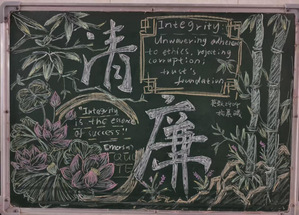 清
廉
Integrity:
Unwavering adherence
to ethics, rejecting
corruption;
trust's
foundation.
"Integrity
is the essence
of success."
Emerson